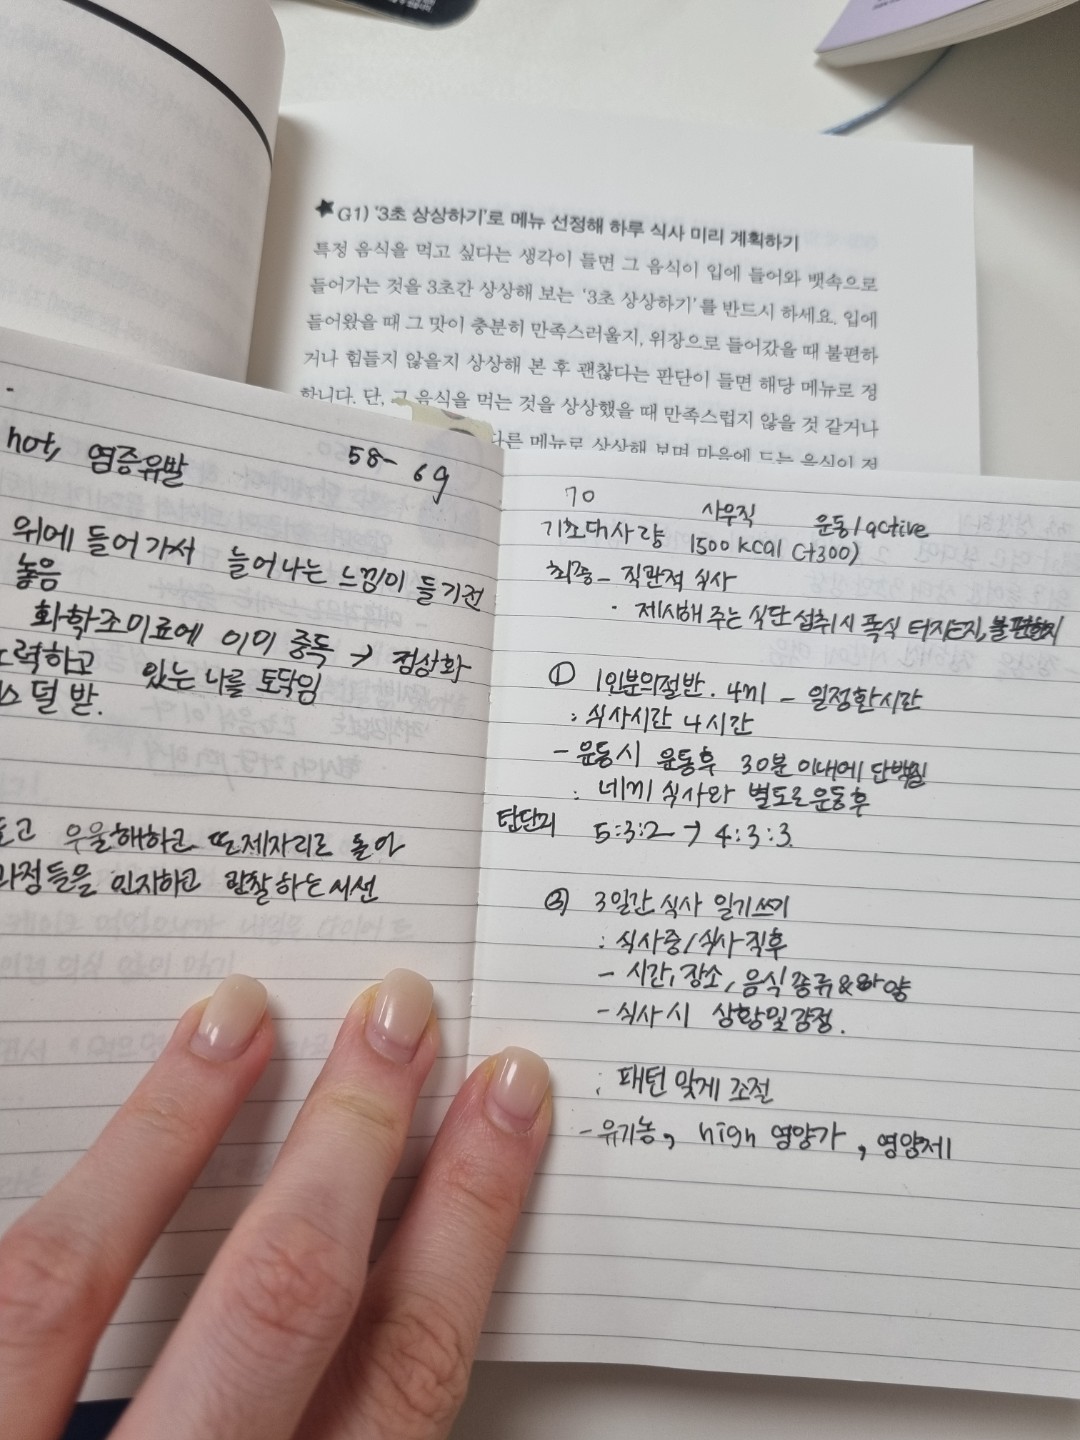 ★ G1) '3초 상상하기'로 메뉴 선정해 하루 식사 미리 계획하기
특정 음식을 먹고 싶다는 생각이 들면 그 음식이 입에 들어와 뱃속으로
들어가는 것을 3초간 상상해 보는 '3초 상상하기'를 반드시 하세요. 입에
들어왔을 때 그 맛이 충분히 만족스러울지, 위장으로 들어갔을 때 불편하
거나 힘들지 않을지 상상해 본 후 괜찮다는 판단이 들면 해당 메뉴로 정
합니다. 단, 그 음식을 먹는 것을 상상했을 때 만족스럽지 않을 것 같거나
다른 메뉴로 상상해 보며 마음에 드는 음식이 정
58- 69
not, 염증유발
위에 들어가서 늘어나는 느낌이 들기전
놓음
화학조미료에 이미 중독 → 정상화
노력하고 있는 나를 토닥임
덜 받.
우울해하고 또 제자리로 돌아
과정들을 인지하고 관찰하는 시선
70
사무직 운동/active
기초대사량 1500kcal (+300)
최종 - 직관적 식사
· 제시해 주는 식단 섭취시 폭식 터지는지, 불편한지
① 1인분의절반. 4끼 - 일정한시간
: 식사시간 4시간
- 운동시 운동후 30분 이내에 단백질
: 네끼 식사와 별도로 운동후
탄단지 5:3:2 → 4:3:3
② 3일간 식사 일기쓰기
: 식사중/식사직후
- 시간, 장소, 음식 종류&양
- 식사시 상황및감정.
: 패턴 맞게 조절
- 유기농, high 영양가, 영양제